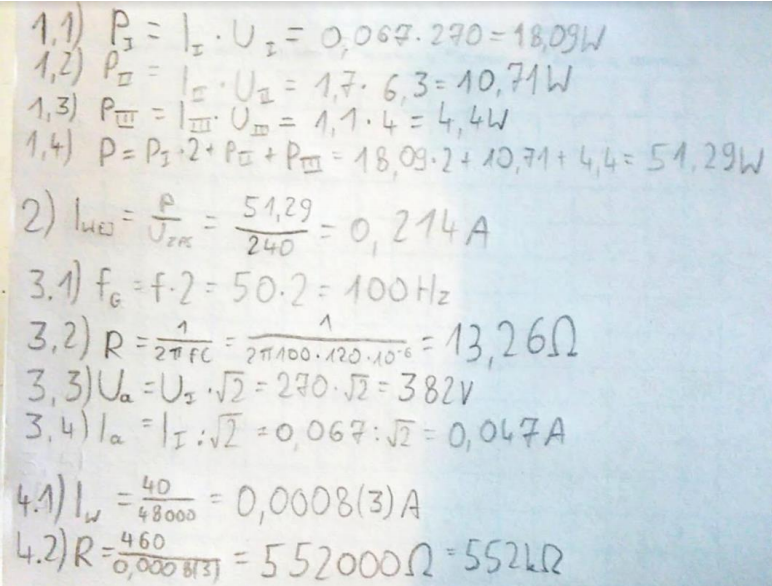 1,1) P_I = I_I · U_I = 0,067 · 270 = 18,09W
1,2) P_II = I_II · U_II = 1,7 · 6,3 = 10,71W
1,3) P_III = I_III · U_III = 1,1 · 4 = 4,4W
1,4) P = P_I · 2 + P_II + P_III = 18,09 · 2 + 10,71 + 4,4 = 51,29W
2) I = P/U = 51,29/240 = 0,214A
3.1) f_G = f · 2 = 50 · 2 = 100 Hz
3,2) R = 1/2πfC = 1/2π100·120·10^-6 = 13,26Ω
3,3) U_a = U_I · √2 = 270 · √2 = 382V
3,4) I_a = I_I : √2 = 0,067 : √2 = 0,047A
4.1) I_w = 40/48000 = 0,0008(3) A
4.2) R = 460/0,0008(3) = 552000Ω = 552kΩ